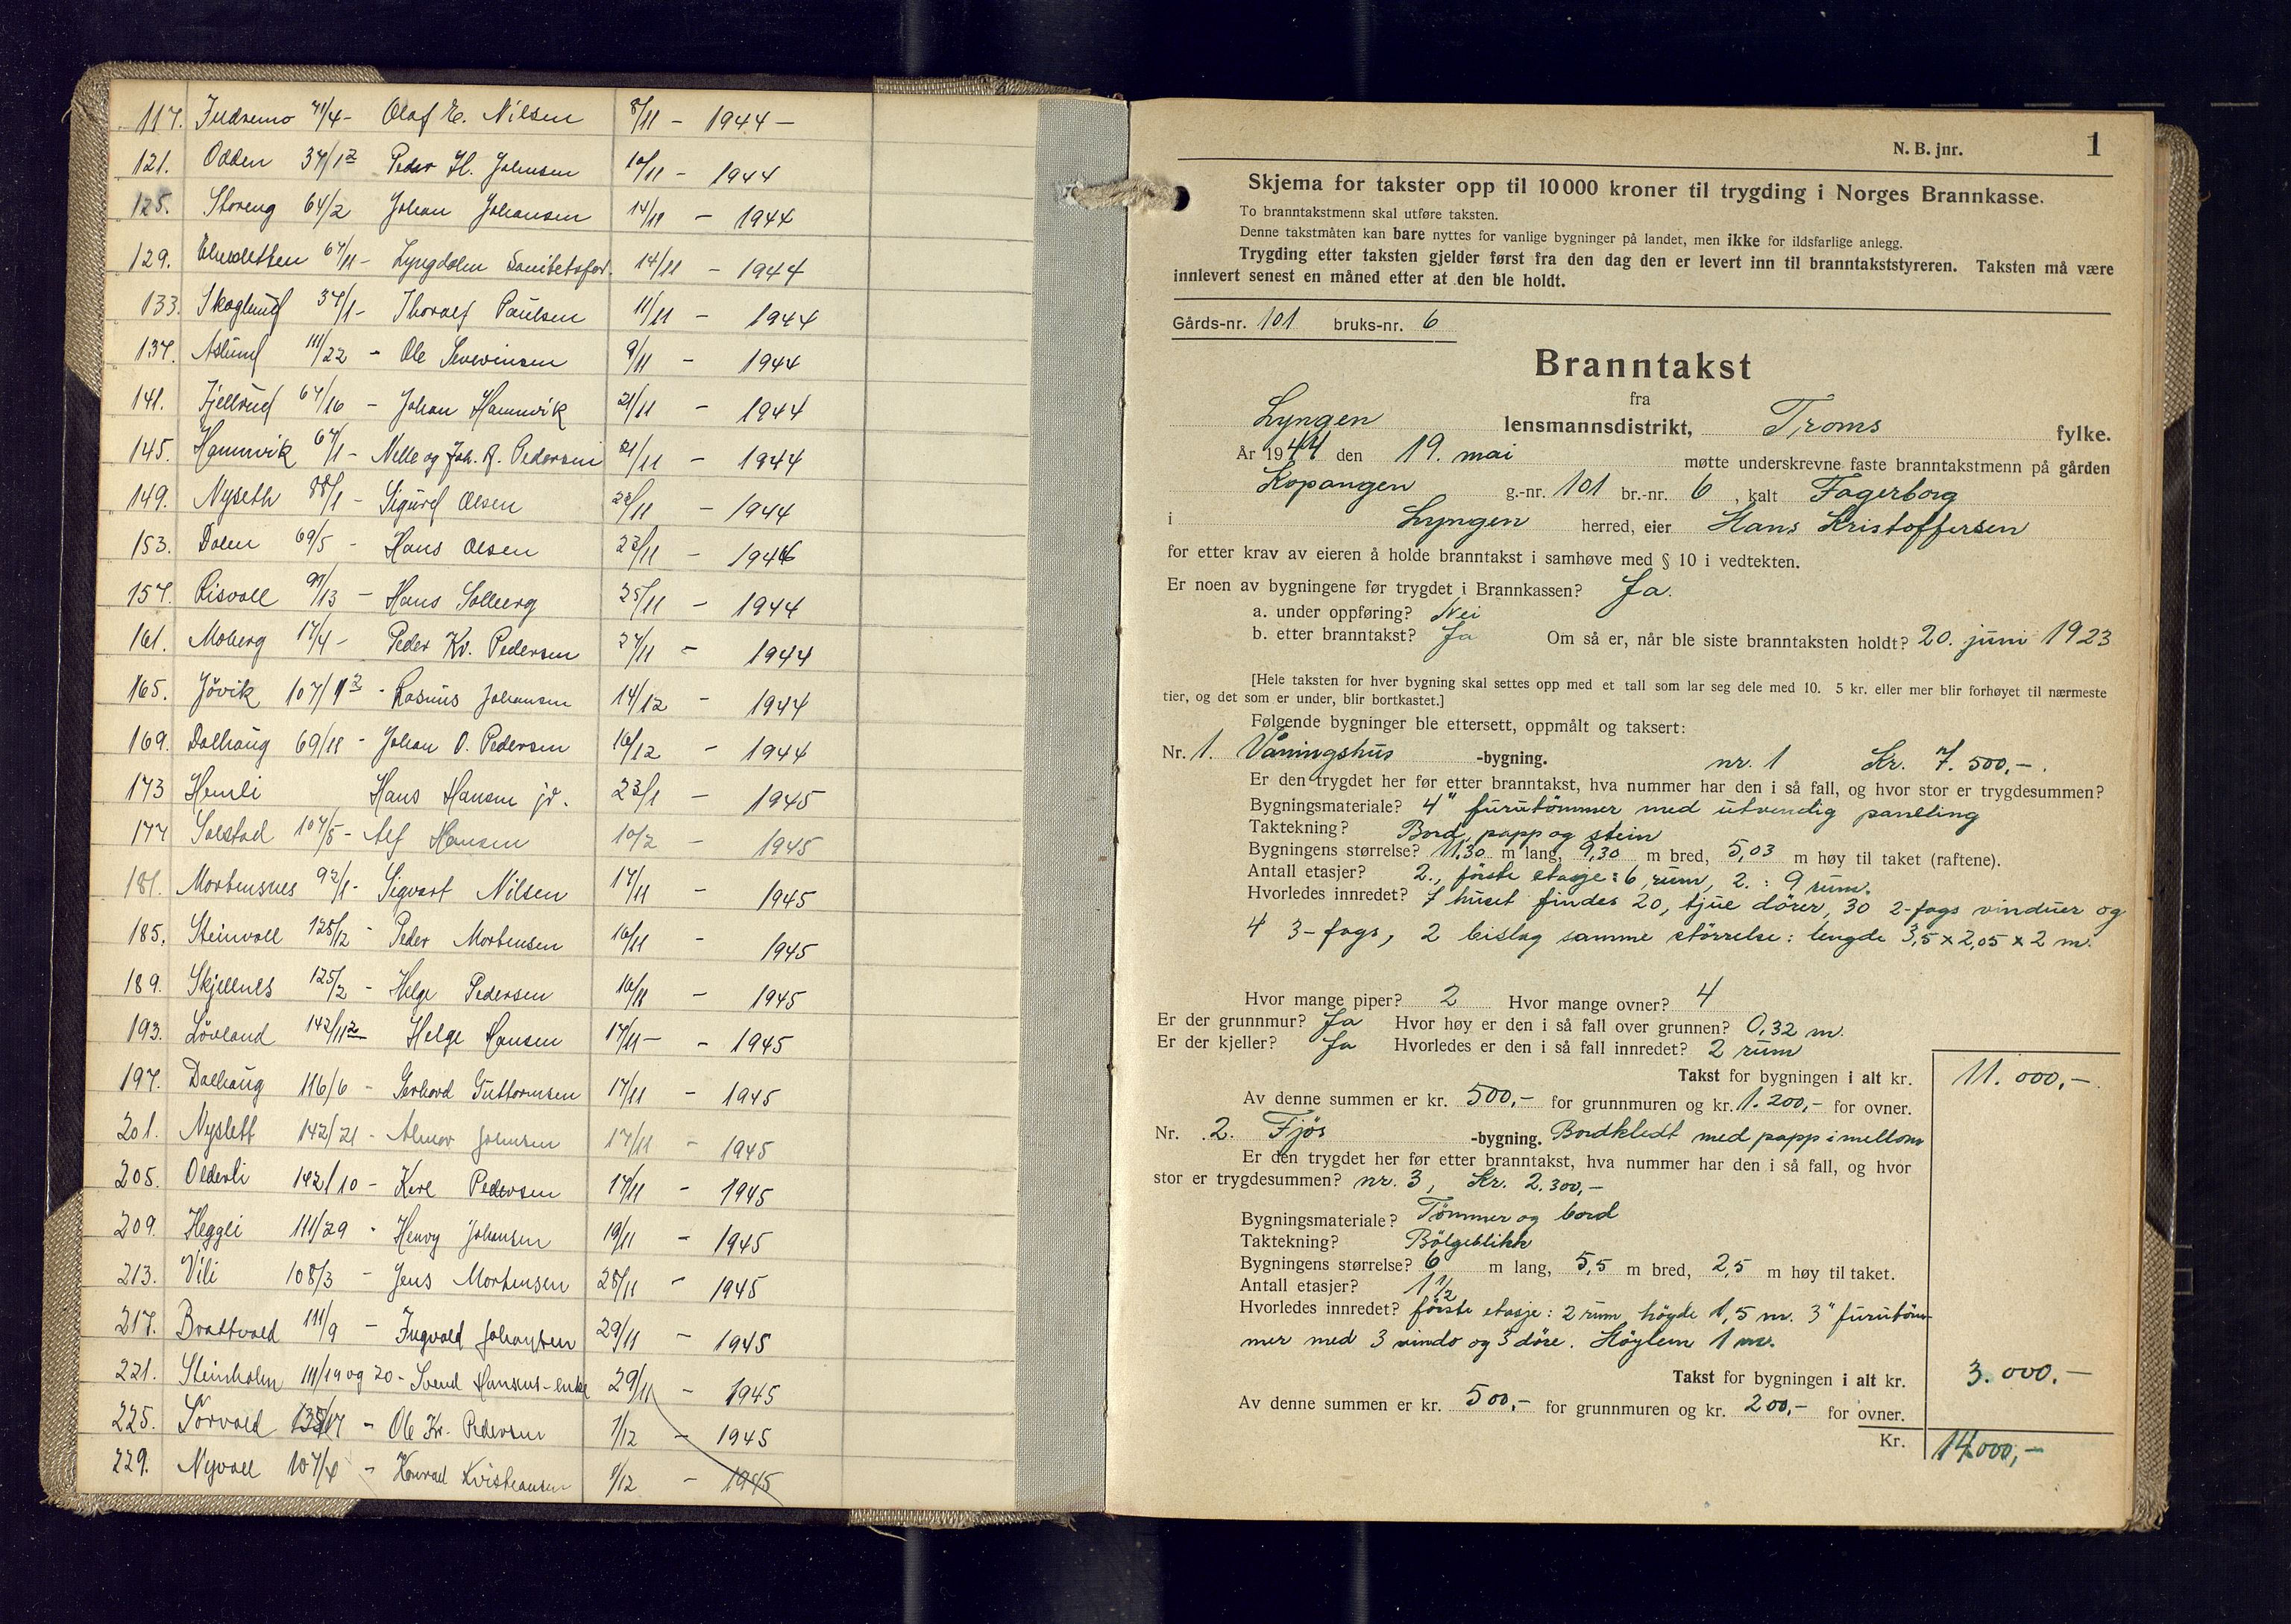 117. Indremo 71/4 - Olaf E. Nilsen 8/11 - 1944 -
121. Odden 37/12 Peder H. Johnsen 10/11 - 1944
125. Storeng 64/2 Johan Johansen 14/11 - 1944
129. 67/11 - Lyngdalen Sanitetsfor. 14/11 - 1944
133. Skoglund 37/1 - Thoralf Paulsen 11/11 - 1944
137. Aslund 111/22 - Ole Severinsen 9/11 - 1944
141. Fjellrud 67/16 - Johan Hamnvik 21/11 - 1944
145. Hamnvik 67/1 - Nelle og Joh. R. Pedersen 21/11 - 1944
149. Nyseth 88/1 - Sigurd Olsen 22/11 - 1944
153. Dalen 69/5 - Hans Olsen 23/11 - 1944
157. Risvoll 97/13 - Hans Solberg 25/11 - 1944
161. Moberg 17/4 - Peder Kr. Pedersen 27/11 - 1944
165. Jövik 107/12 - Rasmus Johansen 14/12 - 1944
169. Dalhaug 69/11 - Johan O. Pedersen 16/12 - 1944
173 Hemli Hans Hansen jr. 23/1 - 1945
177 Solstad 107/5 - Alf Hansen 10/2 - 1945
181. Mortensnes 92/1 - Sigvart Nilsen 17/11 - 1945
185. Steinvoll 125/12 - Peder Mortensen 16/11 - 1945
189. Skjellnes 125/2 - Helge Pedersen 16/11 - 1945
193. Lövland 142/112 Helge Hansen 17/11 - - 1945
197. Dalhaug 116/6 - Gerhard Guttormsen 17/11 - 1945
201. Nyslett 142/21 - Almar Johnsen 17/11 - 1945
205. Olderli 142/10 - Karl Pedersen 17/11 - 1945
209. Heggli 111/29 - Henry Johansen 19/11 - 1945
213. Vili 108/3 - Jens Mortensen 28/11 - 1945
217. Brattvold 111/9 - Ingvald Johansen 29/11 - 1945
221. Steinholm 111/19 og 20 - Svend Hansens-enke 29/11 - 1945
225. Sörvold - Ole Kr. Pedersen 1/12 - 1945
229. Nyvoll 107/4 - Konrad Kristiansen 1/12 - 1945
N. B. jnr. 1
Skjema for takster opp til 10 000 kroner til trygding i Norges Brannkasse.
To branntakstmenn skal utføre taksten.
Denne takstmåten kan bare nyttes for vanlige bygninger på landet, men ikke for ildsfarlige anlegg.
Trygding etter taksten gjelder først fra den dag den er levert inn til branntakststyreren. Taksten må være
innlevert senest en måned etter at den ble holdt.
Gårds-nr. 101 bruks-nr. 6
Branntakst
fra
Lyngen lensmannsdistrikt, Troms fylke.
År 1944 den 19. mai møtte underskrevne faste branntakstmenn på gården
Kopangen g.-nr. 101 br.-nr. 6, kalt Fagerborg
i Lyngen herred, eier Hans Kristoffersen
for etter krav av eieren å holde branntakst i samhøve med § 10 i vedtekten.
Er noen av bygningene før trygdet i Brannkassen? Ja.
a. under oppføring? Nei
b. etter branntakst? Ja Om så er, når ble siste branntaksten holdt? 20. juni 1923
[Hele taksten for hver bygning skal settes opp med et tall som lar seg dele med 10. 5 kr. eller mer blir forhøyet til nærmeste
tier, og det som er under, blir bortkastet.]
Følgende bygninger ble ettersett, oppmålt og taksert:
Nr. 1. Våningshus -bygning. nr. 1 Kr. 7.500,-.
Er den trygdet her før etter branntakst, hva nummer har den i så fall, og hvor stor er trygdesummen?
Bygningsmateriale? 4" furutömmer med utvendig paneling
Taktekning? Bord, papp og stein
Bygningens størrelse? 11,30 m lang, 9,30 m bred, 5,03 m høy til taket (raftene).
Antall etasjer? 2., förste etasje: 6 rum, 2.: 9 rum.
Hvorledes innredet? I huset findes 20, tjue dörer, 30 2-fags vinduer og
4 3-fags, 2 bislag samme störrelse: lengde 3,5 x 2,05 x 2 m.
Hvor mange piper? 2 Hvor mange ovner? 4
Er der grunnmur? Ja Hvor høy er den i så fall over grunnen? 0,32 m.
Er der kjeller? Ja Hvorledes er den i så fall innredet? 2 rum
Takst for bygningen i alt kr. 11.000,-.
Av denne summen er kr. 500,- for grunnmuren og kr. 1.200,- for ovner.
Nr. 2. Fjös -bygning. Bordkledt med papp imellom
Er den trygdet her før etter branntakst, hva nummer har den i så fall, og hvor
stor er trygdesummen? nr. 3, Kr. 2.300,-
Bygningsmateriale? Tömmer og bord
Taktekning? Bölgeblikk
Bygningens størrelse? 6 m lang, 5,5 m bred, 2,5 m høy til taket.
Antall etasjer? 1 1/2
Hvorledes innredet? förste etasje: 2 rum högde 1,5 m. 3" furutöm-
mer med 3 vindo og 3 döre. Höylem 1 m.
Takst for bygningen i alt kr. 3.000.-
Av denne summen er kr. 500,- for grunnmuren og kr. 200,- for ovner.
Kr. 14000,-